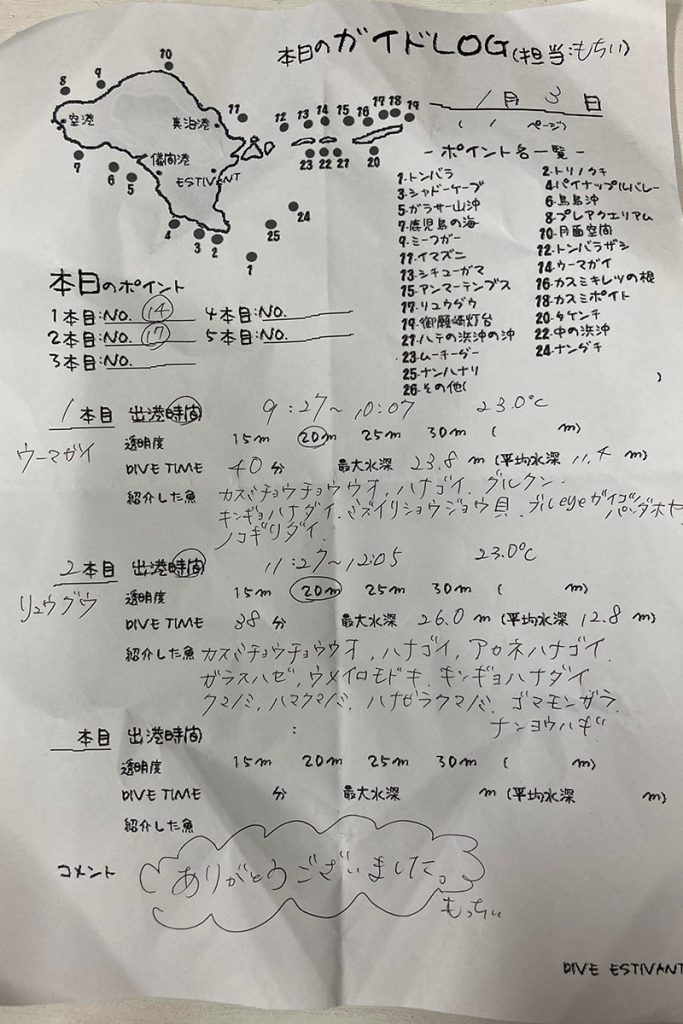 本日のガイドLOG(担当:もちい)
1月 3日
( 1 ページ)
10
8 9
11 12 13 14 15 16 17 18 19
空港
真泊港
儀間港
ESTIVANT
7 6 5
23 22 21 20
4 3 2
24
25
1
- ポイント名一覧 -
1.トンバラ 2.トリノクチ
3.シャドーケーブ 4.パイナップルバレー
5.ガラサー山沖 6.鳥島沖
7.鹿児島の海 8.プレアクエリアム
9.ミーフガー 10.月面空間
11.イマズニ 12.トンバラザシ
13.シチューガマ 14.ウーマガイ
15.アンマーテンプス 16.カスミキレツの根
17.リュウグウ 18.カスミポイト
19.御願崎灯台 20.タケンチ
21.ハテの浜沖の沖 22.中の浜沖
23.ムーチーグー 24.ナングチ
25.ナンハナリ
26.その他( )
本日のポイント
1本目:NO. 14 4本目:NO.
2本目:NO. 17 5本目:NO.
3本目:NO.
1本目 出港時間 9:27~10:07 23.0℃
ウーマガイ
透明度 15m 20m 25m 30m ( m)
DIVE TIME 40分 最大水深 23.8m (平均水深 11.4m)
紹介した魚 カスミチョウチョウウオ、ハナゴイ、グルクン
キンギョハナダイ、ミズイリショウジョウ貝、ブルeyeガイゴハ
パンダホヤ
ノコギリダイ
2本目 出港時間 11:27~12:05 23.0℃
リュウグウ
透明度 15m 20m 25m 30m ( m)
DIVE TIME 38分 最大水深 26.0m (平均水深 12.8m)
紹介した魚 カスミチョウチョウウオ、ハナゴイ、アカネハナゴイ
ガラスハゼ、ウメイロモドキ、キンギョハナダイ
クマノミ、ハマクマノミ、ハナビラクマノミ、ゴマモンガラ
ナンヨウハギ
本目 出港時間 :
透明度 15m 20m 25m 30m ( m)
DIVE TIME 分 最大水深 m (平均水深 m)
紹介した魚
コメント ありがとうございました。
もっちぃ
DIVE ESTIVANT